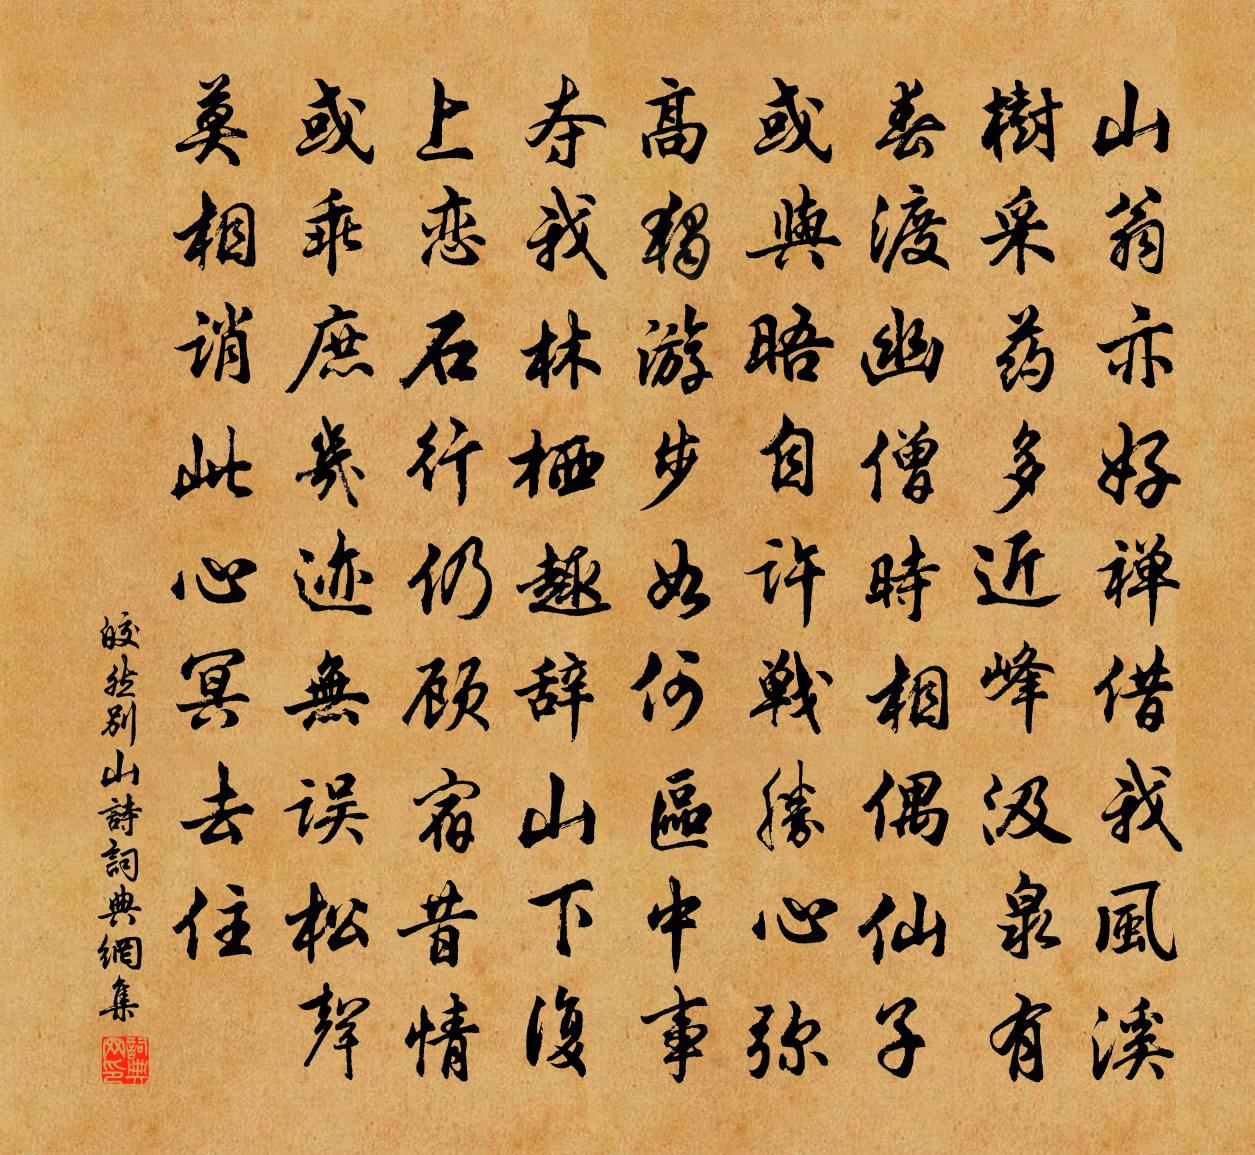 山翁亦好禅借我風溪
樹采药多近峰汲泉有
春渡幽僧時相偶仙子
或與晤自许戰勝心弥
高獨游步如何區中事
夺我林栖趣辞山下復
上恋石行仍顾宿昔情
或乖庶幾迹無误松聲
莫相诮此心冥去住
皎然别山詩詞典網集
詞典网印